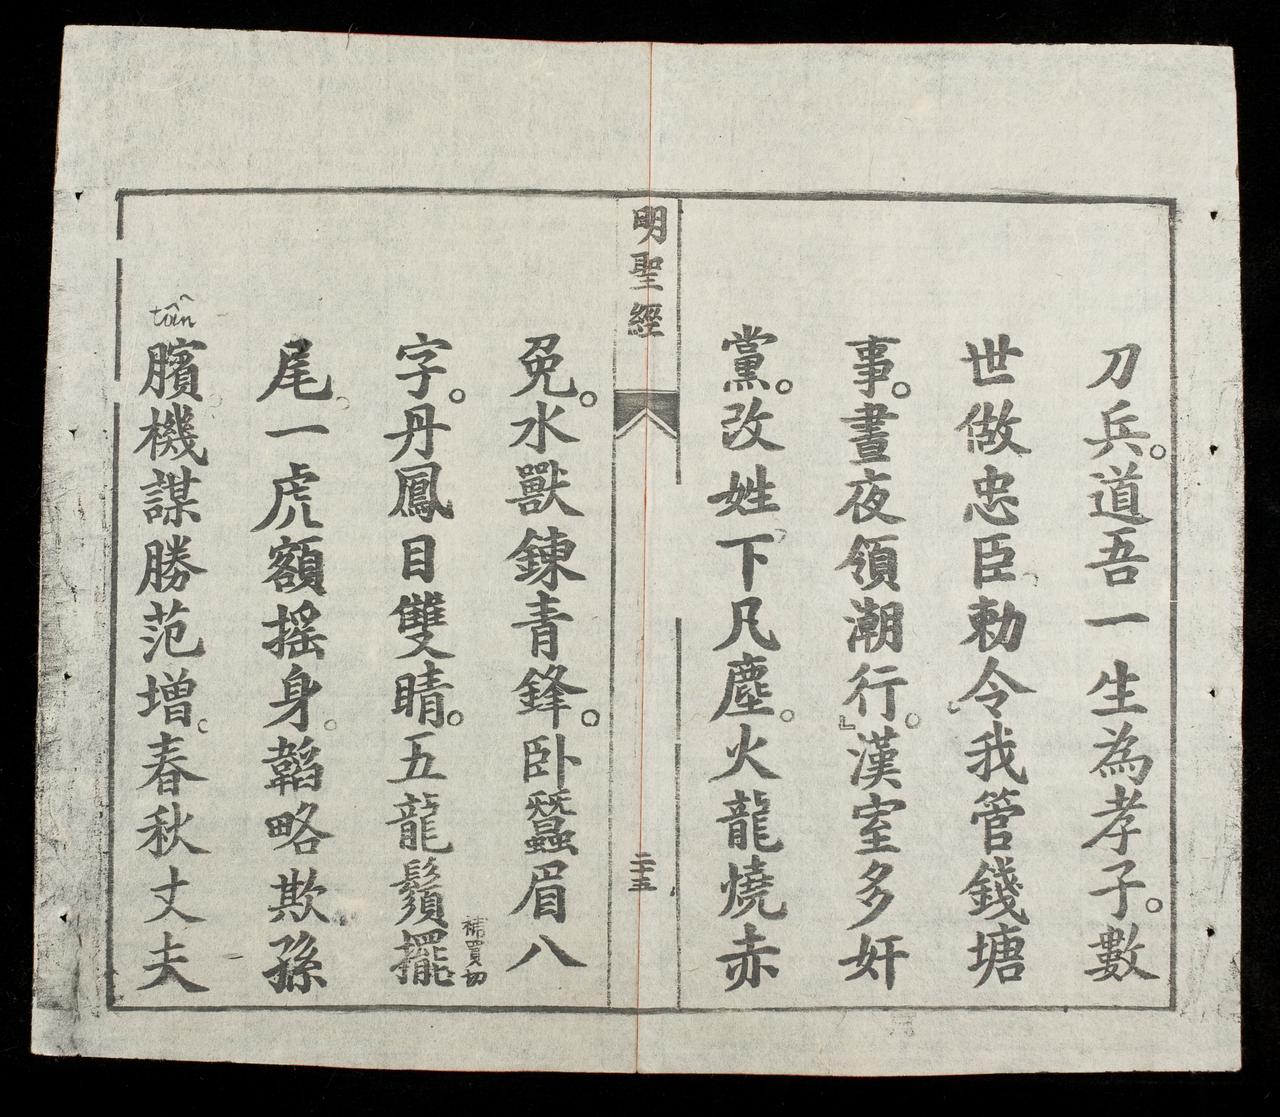 刀兵。道吾一生為孝子。數
世做忠臣。勅令我管錢塘
事。晝夜領潮行。漢室多奸
黨。改姓下凡塵。火龍燒赤
明聖經
二十五
免。水獸鍊青鋒。卧蠶眉八
字。丹鳳目雙睛。五龍鬚擺
補買切
尾。一虎額搖身。韜略欺孫
toîn
臏。機謀勝范增。春秋丈夫